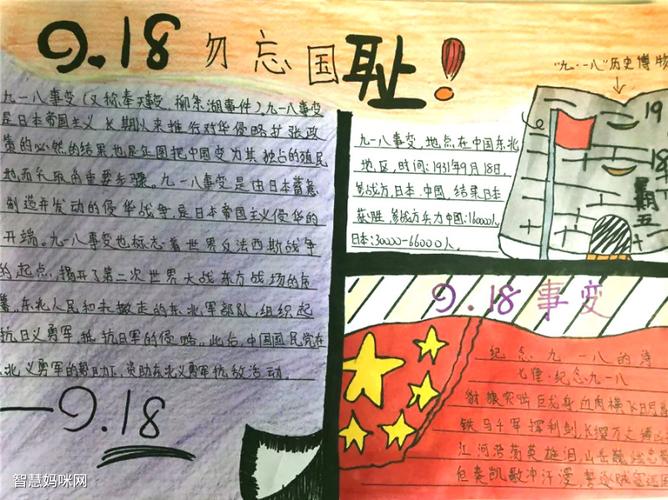 9.18 勿忘国耻!
九一八事变(又称奉天事变、柳条湖事件)。九一八事变
是日本帝国主义长期以来推行对华侵略扩张政
策的必然的结果也是企图把中国变为其独占的殖民
地而采取的重要步骤。九一八事变是由日本蓄意
制造并发动的侵华战争,是日本帝国主义侵华的
开端。九一八事变也标志着世界反法西斯战争
的起点,揭开了第二次世界大战东方战场的序
幕。东北人民和未撤走的东北军部队,组织起
抗日义勇军抵抗日军的侵略。此后,中国国民党在
东北义勇军的帮助下,资助东北义勇军抗敌活动。
9.18
九一八事变,地点在中国东北
地区,时间:1931年9月18日,
参战方,日本.中国,结果日本
获胜,参战方兵力中国:160000人
日本:30000-66000人。
"九·一八"历史博物
19
18
9.18事变
纪念九一八的诗
七律·纪念九一八
豺狼突哮巨龙身,血肉横飞日月
铁马千军挥利剑,
江河浴荡英雄泪,山岳
但奏凯歌冲汗漫,
智慧妈咪网